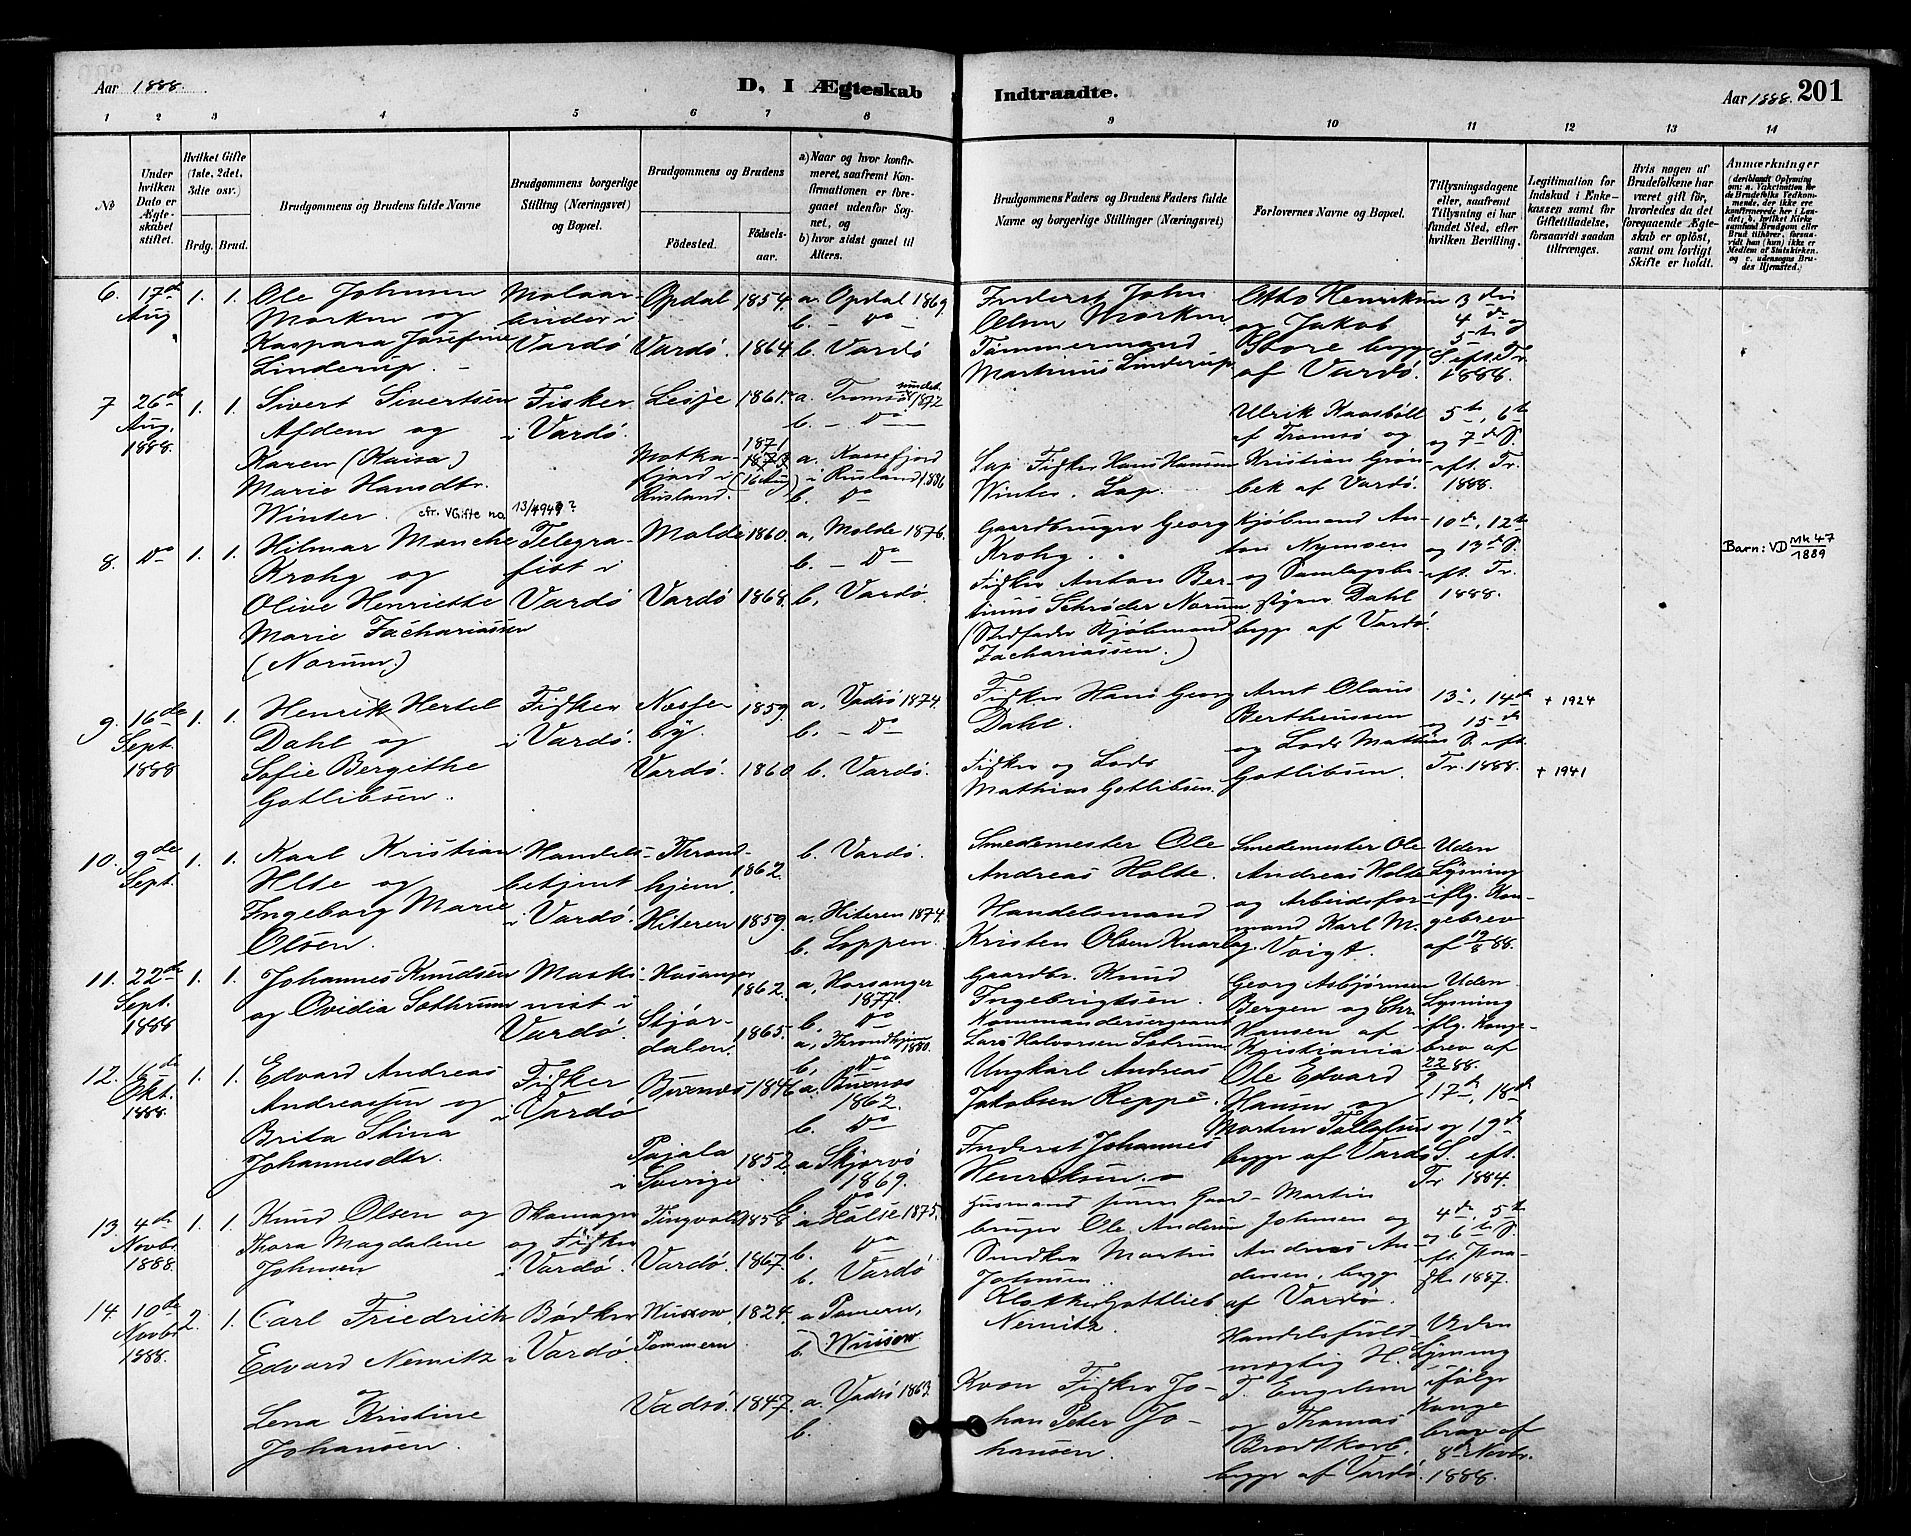 Aar 1888.
D. I Ægteskab Indtraadte.
Aar 1888. 201
1 2 3 4 5 6 7 8 9 10 11 12 13 14
No
Under hvilken Dato er Ægteskabet stiftet.
Hvilket Gifte (1ste, 2det, 3die osv.)
Brdg. Brud.
Brudgommens og Brudens fulde Navne
Brudgommens borgerlige Stilling (Næringsvei) og Bopæl.
Brudgommens og Brudens
Fødested. Fødselsaar.
a) Naar og hvor konfirmeret, saafremt Konfirmationen er foregaaet udenfor Sognet, og
b) hvor sidst gaaet til Alters.
Brudgommens Faders og Brudens Faders fulde Navne og borgerlige Stillinger (Næringsvei)
Forlovernes Navne og Bopæl.
Tillysningsdagene eller, saafremt Tillysning ei har fundet Sted, efter hvilken Bevilling.
Legitimation for Indskud i Enkekassen samt for Giftetilladelse, forsaavidt saadan tiltrænges.
Hvis nogen af Brudefolkene har været gift før, hvorledes da det foregaaende Ægteskab er opløst, samt om lovligt Skifte er holdt.
Anmærkninger (deriblandt Oplysning om: a. Vaksination for de Brudefolks Vedkommende, der ikke ere konfirmerede her i Landet; b. hvilket Kirkesamfund Brudgom eller Brud tilhører, forsaavidt han (hun) ikke er Medlem af Statskirken, og c. udensogns Brudes Hjemsted.)
6. 17de Aug 1. 1.
Ole Johnsen
Morken og
Kaspara Josefine
Linderup.
i Vardö
Opdal 1854. a. Opdal 1869.
b. - Do -
Vardö. 1864. b. Vardö
Inderst John
Olsen Morken
Tømmermand
Martinus Linderup
Otto Henriksen
og Jakob
Store begge
af Vardö.
3die
4de og
5te
S. eft. Tr.
1888.
7 26de Aug. 1888. 1. 1.
Sivert Sivertsen
Afdem og
Karen (Kaisa)
Marie Hansdtr.
Winter. cfr. VGifte no. 13/1949?
Fisker
i Vardö.
Lesje 1861. a. Tromsösundet 1872
b. - Do -
Motkafjord i Rusland
1871
1873
(16 Aug)
a. Kaasefjord
i Rusland 1886
b. Do
Lap Fisker Hans Hansen
Winter. Lap.
Ulrik Kaasböll
af Tromsö og
Kristian Grönbek af Vardö.
5te, 6te
og 7de S.
eft. Tr.
1888.
8. Do 1. 1.
Hilmar Monche
Krohg og
Olive Henriette
Marie Zachariassen
(Norum.)
Telegrafist i
Vardö
Molde 1860. a. Molde 1876.
b. - Do -
Vardö 1868. b. Vardö.
Gaardbruger Georg
Krohg.
Fisker Anton Bertinus Schrøder Norum
(Stedfader Kjøbmand
Zachariassen.)
Kjøbmand Anton Nymoen
og Samlagsbestyrer Dahl
begge af Vardö.
10de, 12te
og 13de S.
eft. Tr.
1888.
Barn: VD Mk 47/1889
9. 16de Sept. 1888 1. 1.
Henrik Hertel
Dahl og
Sofie Bergithe
Gotlibsen.
Fisker
i Vardö.
Næsseby. 1859. a. Vadsö 1874.
b. - Do -
Vardö. 1860. b. Vardö.
Fisker Hans Georg
Dahl.
Fisker og Lods
Mathias Gotlibsen.
Arnt Olaus
Bertheussen
og Lods Mathias
Gotlibsen.
13de, 14de
og 15de
S. eft.
Tr. 1888.
+ 1924
+ 1941
10. 9de Sept. 1. 1.
Karl Kristian
Holte og
Ingeborg Marie
Olsen.
Handelsbetjent
i Vardö.
Throndhjem. 1862. b. Vardö.
Hiteren 1859. a. Hiteren 1874.
b. Loppen.
Smedemester Ole
Andreas Holte.
Handelsmand
Kristen Olsen Knarlag.
Smedemester Ole
Andreas Holte
og Arbeidsformand Karl M.
Voigt.
Uden
Lysning
iflg. Kongebrev
af 19/8 88.
11. 22de Sept. 1888 1. 1.
Johannes Knudsen
og Ovidia Sæthrum
Maskinist i
Vardö.
Hosanger 1862. a. Horsanger
1877.
b. Do
Stjørdalen. 1865. a. Throndhjem 1880.
b. Do
Gaardbr. Knud
Ingebrigtsen.
Kommandersergeant
Lars Halvorsen Sætrum
Georg Asbjørnsen
Bergen og Chr.
Hansen af
Kristiania
Uden
Lysning
iflg. Kongebrev af
22/9 88.
12. 16de Okt. 1888. 1. 1.
Edvard Andreas
Andreassen og
Brita Stina
Johannesdtr.
Fisker
i Vardö
Buxenæs 1846 a. Buxnæs
1862.
b. Do
Pajala
i Sverige 1852. a. Skjervö
1869.
b. Do
Ungkarl Andreas
Jakobsen Reppe.
Inderst Johannes
Henriksen.
Ole Edvard
Hansen og
Morten Tollefsus
begge af Vardö
17de, 18de
og 19de
S. eft.
Tr. 1884.
13. 4de Novbr. 1888. 1. 1.
Knud Olsen og
Thora Magdalene
Johnsen
Skomager
og Fisker
i Vardö.
Tingvold 1858. a. Halse 1875.
b. Do
Vardö. 1867. b. Vardö
Husmand senere Gaardbruger Ole Andersen
Snedker Martin
Johnsen.
Martin
Johnsen og
Andreas Andersen, begge
af Vardö.
4de, 5te
og 6te S.
eft. Paaske 1887.
14. 10de Novbr. 1888. 2. 1.
Carl Friedrich
Edvard Nemitz
Lena Kristine
Johansen.
Bødker
i Vardö.
Wussow,
Pommern 1824. a. Pomern,
b. Wussow
Vadsö. 1847. a. Vadsö 1863.
b.
Klokker Gottlieb
Nemitz.
Kvæn Fisker Johan Peter Johansen.
Handelsfuldmægtig H.
T. Engelsen
og Thomas
Brodtkorb.
begge af Vardö.
Uden
Lysning
ifølge
Kongebrev af
8de Novbr.
1888.